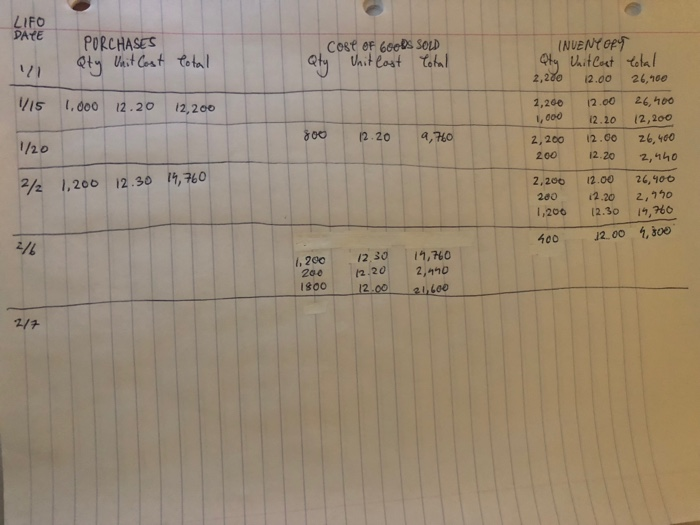 LIFO
DATE
PURCHASES COST OF GOODS SOLD INVENTORY
Qty Unit Cost Total Qty Unit Cost Total Qty Unit Cost Total
1/1 2,200 12.00 26,400
1/15 1,000 12.20 12,200 2,200 12.00 26,400
1,000 12.20 12,200
1/20 800 12.20 9,760 2,200 12.00 26,400
200 12.20 2,440
2/2 1,200 12.30 14,760 2,200 12.00 26,400
200 12.20 2,440
1,200 12.30 14,760
2/6 400 12.00 4,800
1,200 12.30 14,760
200 12.20 2,440
1800 12.00 21,600
2/7